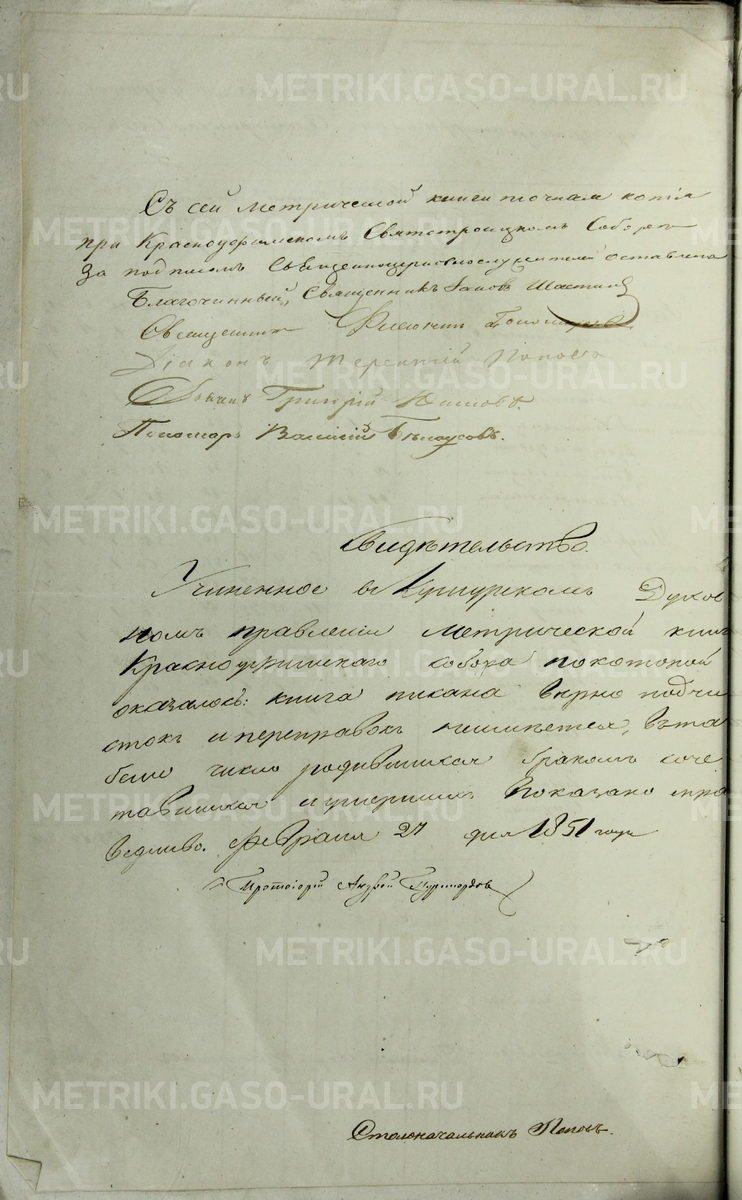 Съ сей метрической книги точная копія
при Красноуфимскомъ Святотроицкомъ Соборе
за подписомъ Священноцерковнослужителей оставлена
Благочинный, Священникъ Іаковъ
Священник
Діаконъ Терентий Поповъ
Дьячекъ Григорій
Пономарь Василій Бѣлоусовъ.
Свидѣтельство.
Учиненное в Кунгурскомъ Духов
номъ правленіи метрической книг
Красноуфимскаго собора по которой
оказалось: книга писана вѣрно подчи
стокъ и переправокъ неимѣется, вѣта
беле число родившихся бракомъ соче
тавшихся и умершихъ показано спра
ведливо. Февраля 27 дня 1851 года
Протоіерей Андрей
Столоначальникъ Поповъ.
METRIKI.GASO-URAL.RU